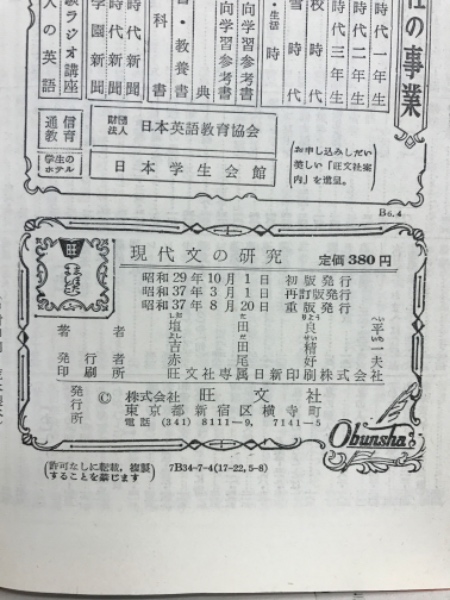 の事業
時代一年生
時代二年生
時代三年生
校時代
雪時代
・生活 時
向学習参考書
向学習参考書
典
・教養書
科書
時代新聞
時代新聞
学園新聞
ラジオ講座
人の英語
通信教育
財団法人 日本英語教育協会
学生のホテル
日本学生会館
(お申し込みしだい
美しい『旺文社案
内』を進呈。)
B6.4
旺
現代文の研究 定価380円
昭和29年10月1日 初版発行
昭和37年3月1日 再訂版発行
昭和37年8月20日 重版発行
著者 塩田良平
吉田精一
発行者 赤尾好夫
印刷所 旺文社専属日新印刷株式会社
発行所 © 株式会社 旺文社
東京都新宿区横寺町
電話 (341) 8111-9, 7141-5
Obunsha
(許可なしに転載、複製
することを禁じます)
7B34-7-4(17-22,5-8)